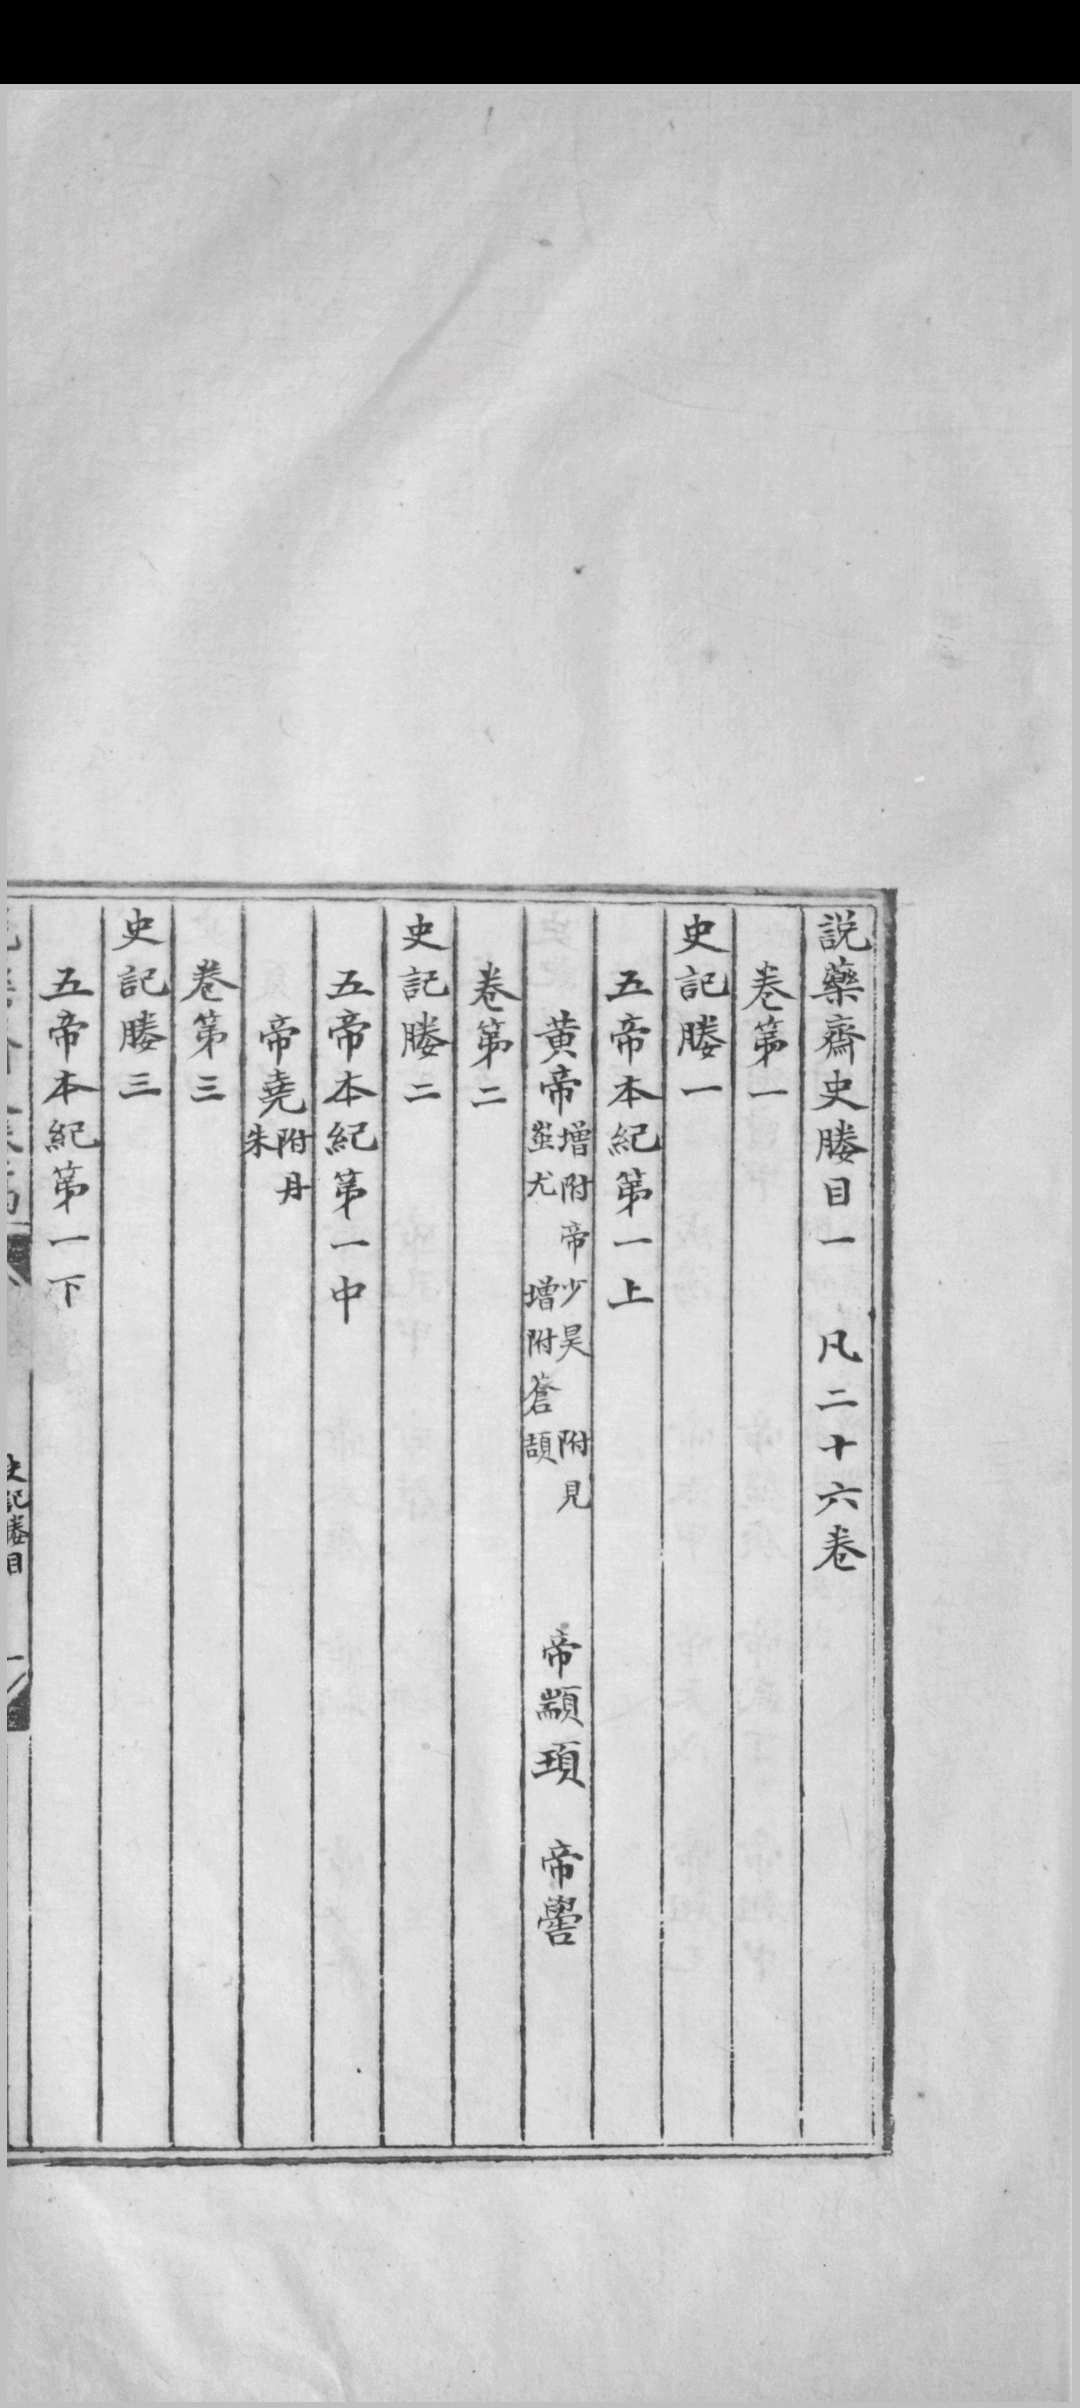 説藥齋史𦡱目一　凡二十六卷
卷第一
史記𦡱一
五帝本紀第一上
黄帝增附帝少昊附見蚩尤增附蒼頡　帝顓頊　帝嚳
卷第二
史記𦡱二
五帝本紀第一中
帝堯附丹朱
卷第三
史記𦡱三
五帝本紀第一下